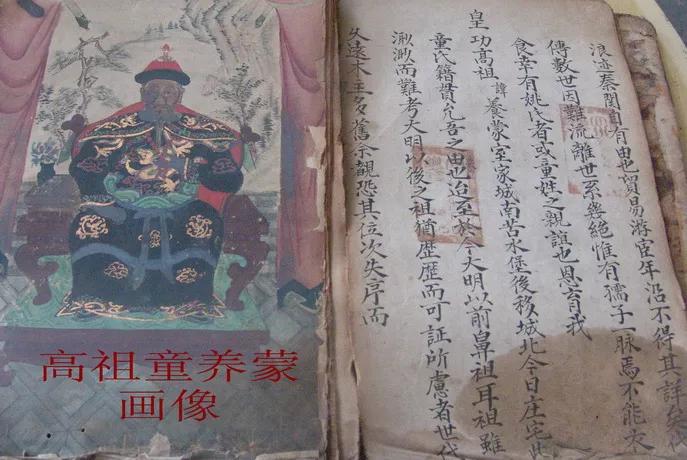 浪迹秦関自有由也貿易游宦年沿不得其詳矣代
傳數世因難流離世系幾絕惟有孺子一脉焉不能衣
食幸有姚氏者或童姓之親誼也恩育我
皇功高祖諱養蒙室家城南苦水堡後移城北今日庄宅此
童氏籍貫允吾之由也迨至於今大明以前鼻祖耳祖雖
渺渺而難考大明以後之祖猶歷歷而可証所慮者世代
久遠木主多舊余覩恐其位次失序而
高祖童养蒙
画像